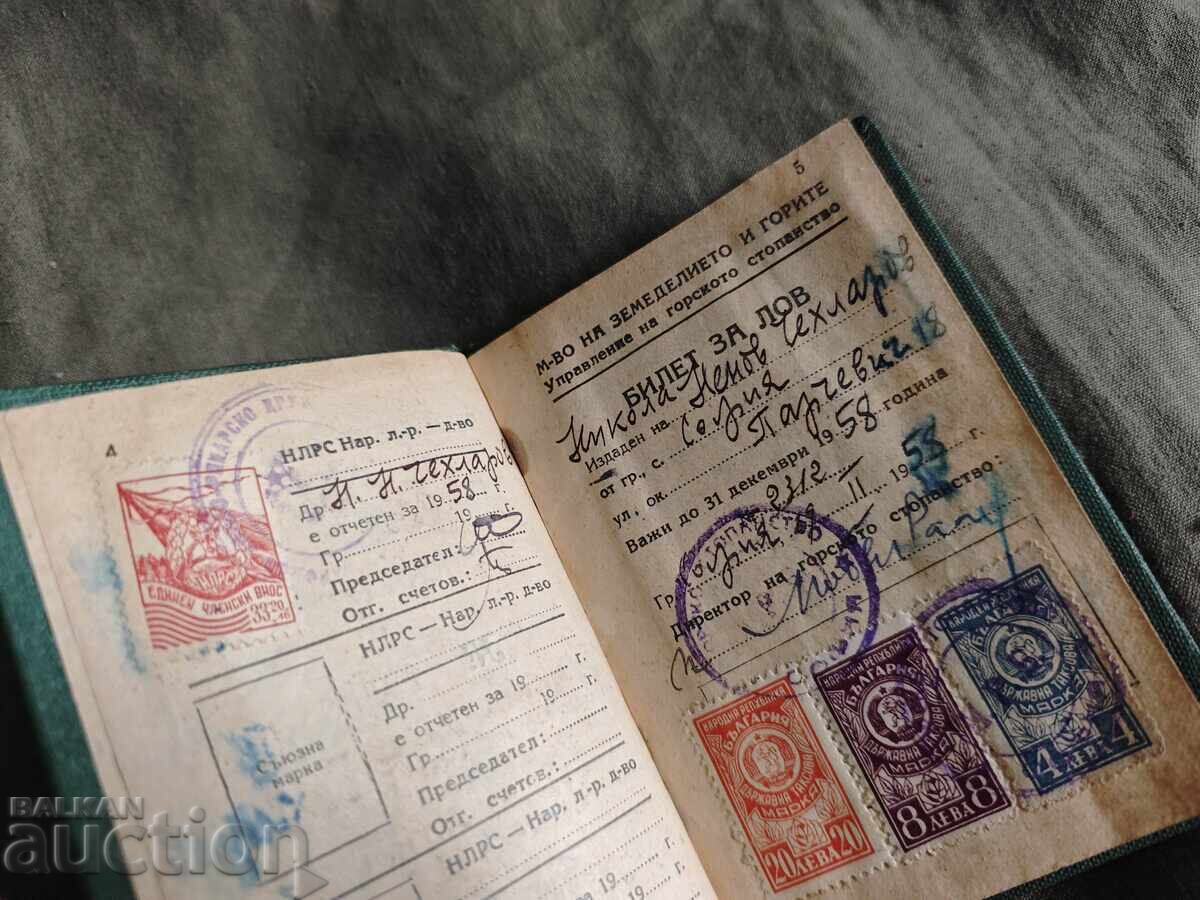 4
НЛРС Нар. л.-р. – д-во
Др. Н. Н. Чехларов
е отчетен за 1958 г.
Гр. 19 г.
Председател:
Отг. счетов.:
ЕДИНЕН ЧЛЕНСКИ ВНОС
33·20
НЛРС — Нар. л.-р. д-во
Съюзна
марка
Др.
е отчетен за 19 г.
19 г.
Председател:
Отг. счетов.:
НЛРС — Нар. л.-р. д-во
5
М-ВО НА ЗЕМЕДЕЛИЕТО И ГОРИТЕ
Управление на горското стопанство
БИЛЕТ ЗА ЛОВ
Никола Ненов Чехларов
Издаден на
от гр., с. София
ул., ок. Парчевич 18
Важи до 31 декември 1958 година
2312
Гр. София II 1958 г.
Директор на горското стопанство:
НАРОДНА РЕПУБЛИКА
БЪЛГАРИЯ
ДЪРЖАВНА ТАКСОВА
МАРКА
20 ЛЕВА 20
НАРОДНА РЕПУБЛИКА
БЪЛГАРИЯ
ДЪРЖАВНА ТАКСОВА
МАРКА
8 ЛЕВА 8
НАРОДНА РЕПУБЛИКА
ДЪРЖАВНА ТАКСОВА
МАРКА
4 ЛЕВА 4
BALKAN
auction